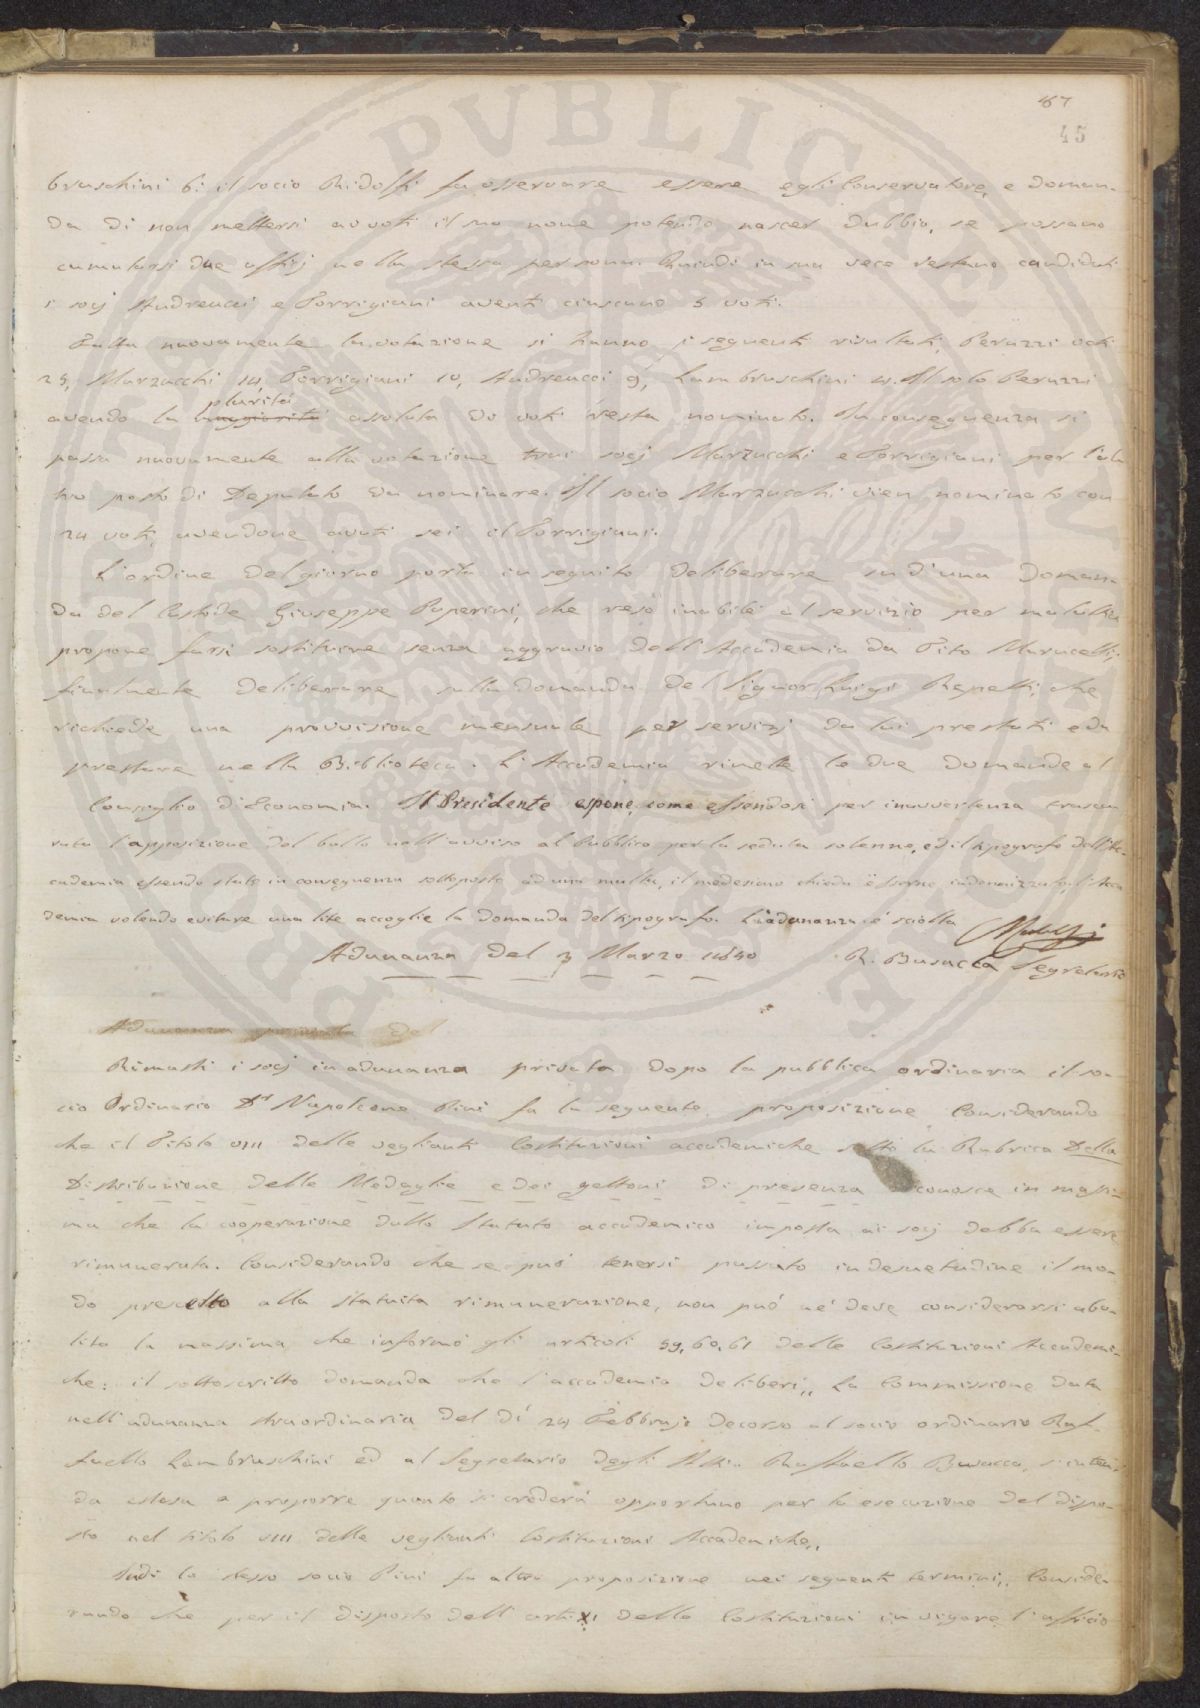 67
45
bruschini 6: il socio Ridolfi fa osservare essere egli Conservatore, e doman-
da di non mettersi ai voti il suo nome potendo nascer dubbio, se possano
cumularsi due uffizj nella stessa persona. Quindi in sua vece restano candidati
i socj Andreucci e Torrigiani aventi ciascuno 5 voti.
Fatta nuovamente la votazione si hanno i seguenti risultati, Peruzzi voti
25, Marzucchi 14, Torrigiani 10, Andreucci 9, Lambruschini 4. Il solo Peruzzi
pluritá
avendo la maggioritá assoluta di voti resta nominato. In conseguenza si
passa nuovamente alla votazione tra i socj Marzucchi e Torrigiani per l'al
tro posto di Deputato da nominare. Il socio Marzucchi vien nominato con
24 voti, avendone avuti sei il Torrigiani.
L'ordine del giorno porta in seguito deliberare su d'una doman-
da del Custode Giuseppe Paperini, che reso inabile al servizio per malattia
propone farsi sostituire senza aggravio dell'Accademia da Tito Marucelli.
finalmente deliberare sulla domanda del Signor Luigi Repetti, che
richiede una provvisione mensuale per servizj da lui prestati e da
prestare nella Biblioteca. L'Accademia rimette le due domande al
Consiglio d'Economia. Il Presidente espone, come essendosi per inavvertenza trascu
rata l'apposizione del bollo nell'avviso al Pubblico per la seduta solenne, ed il tipografo dell'Ac-
cademia essendo stato in conseguenza sottoposto ad una multa, il medesimo chiede esserne indennizzato, l'Acca
demia volendo evitare una lite accoglie la domanda del tipografo. L'adunanza è sciolta
Adunanza del 3 Marzo 1840
R. Busacca Segretario
Adunanza privata del
Rimasti i socj in adunanza privata dopo la pubblica ordinaria il so-
cio Ordinario Dr Napoleone Pini fa la seguente proposizione Considerando
che il Titolo VIII delle veglianti Costituzioni accademiche sotto la Rubrica Della
Distribuzione delle Medaglie e dei gettoni di presenza riconosce in massi-
ma che la cooperazione dallo Statuto accademico imposta ai socj debba essere
rimunerata. Considerando che se può tenersi passato in desuetudine il mo-
do prescelto alla statuita rimunerazione, non può né deve considerarsi abo-
lita la massima che informó gli articoli 59, 60, 61 delle Costituzioni Accademi-
che: il sottoscritto domanda che l'accademia deliberi,, La Commissione data
nell'adunanza straordinaria del dì 24 Febbrajo decorso al socio ordinario Raf-
faello Lambruschini ed al Segretario degli Atti Raffaello Busacca, s'inten
da estesa a proporre quanto si crederà opportuno per la esecuzione del dispo-
sto nel titolo VIII delle veglianti Costituzioni Accademiche,,
Indi lo stesso socio Pini fa altra proposizione nei seguenti termini,, Conside-
rando che per il disposto dell'arti XI delle Costituzioni in vigore l'uffizio